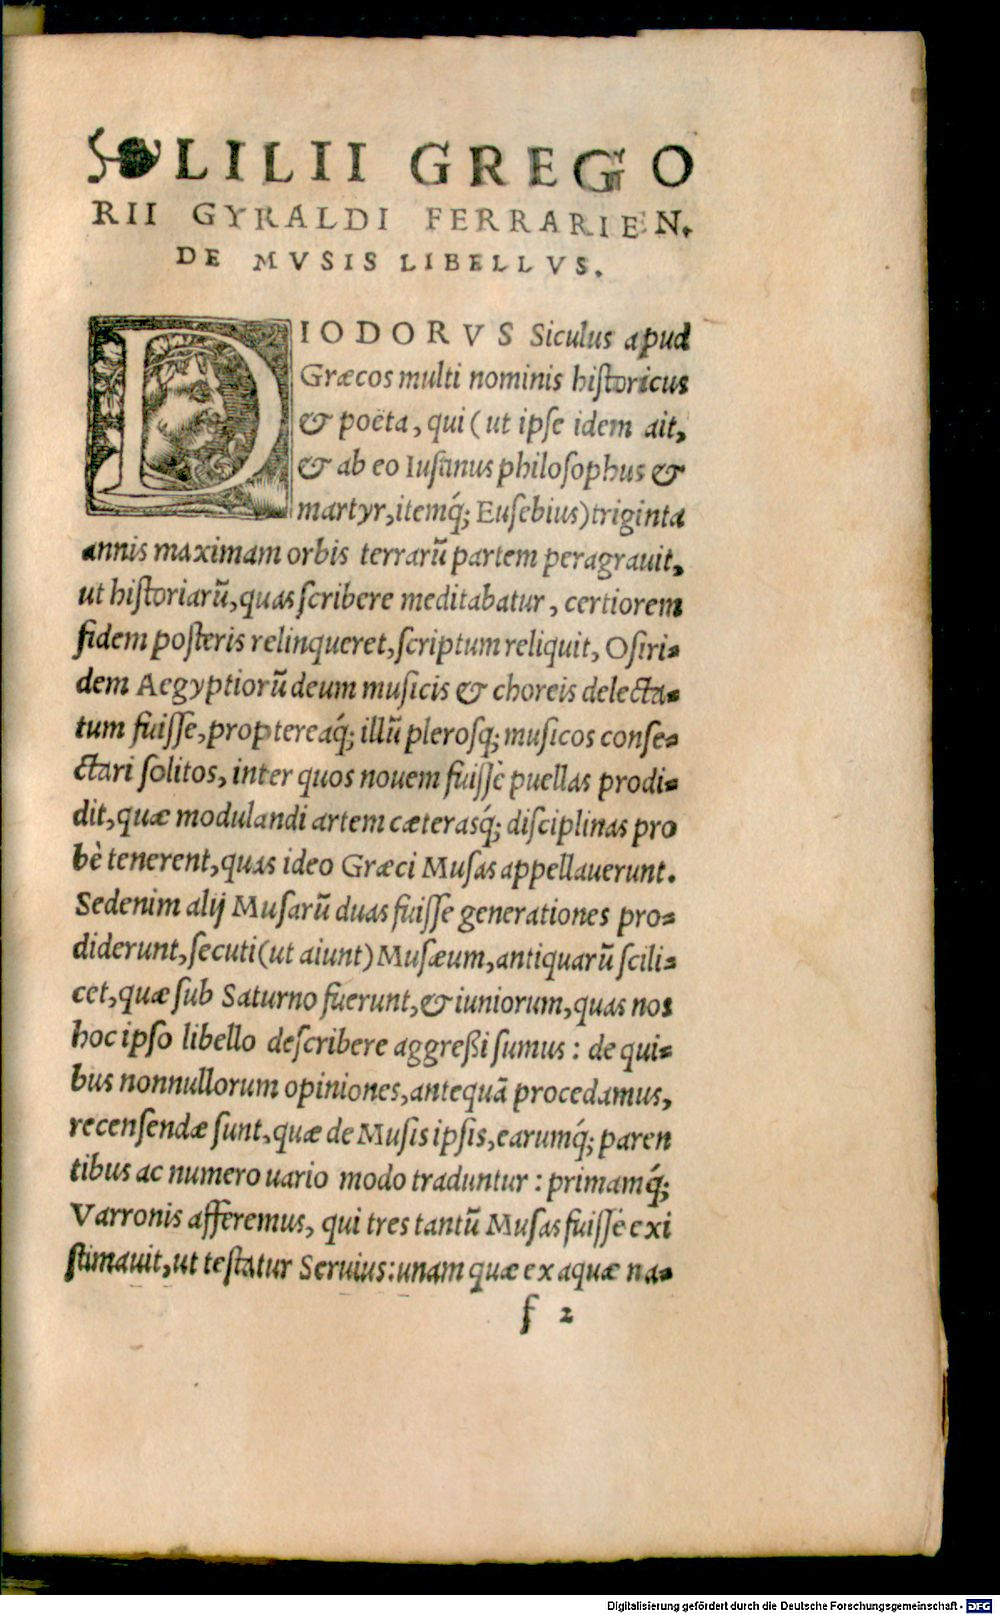 ❧ LILII GREGO
RII GYRALDI FERRARIEN.
DE MVSIS LIBELLVS.
DIODORVS Siculus apud
Græcos multi nominis historicus
& poëta, qui (ut ipse idem ait,
& ab eo Iustinus philosophus &
martyr, itemq́; Eusebius) triginta
annis maximam orbis terrarū partem peragrauit,
ut historiarū, quas scribere meditabatur, certiorem
fidem posteris relinqueret, scriptum reliquit, Osiri-
dem Aegyptiorū deum musicis & choreis delecta-
tum fuisse, proptereaq́; illū plerosq; musicos conse-
ctari solitos, inter quos nouem fuisse puellas prodi-
dit, quæ modulandi artem cæterasq́; disciplinas pro
bè tenerent, quas ideo Græci Musas appellauerunt.
Sedenim alij Musarū duas fuisse generationes pro-
diderunt, secuti (ut aiunt) Musæum, antiquarū scili-
cet, quæ sub Saturno fuerunt, & iuniorum, quas nos
hoc ipso libello describere aggreßi sumus: de qui-
bus nonnullorum opiniones, antequā procedamus,
recensendæ sunt, quæ de Musis ipsis, earumq́; paren
tibus ac numero uario modo traduntur: primamq́;
Varronis afferemus, qui tres tantū Musas fuisse exi
stimauit, ut testatur Seruius: unam quæ ex aquæ na-
f 2
Digitalisierung gefördert durch die Deutsche Forschungsgemeinschaft - DFG